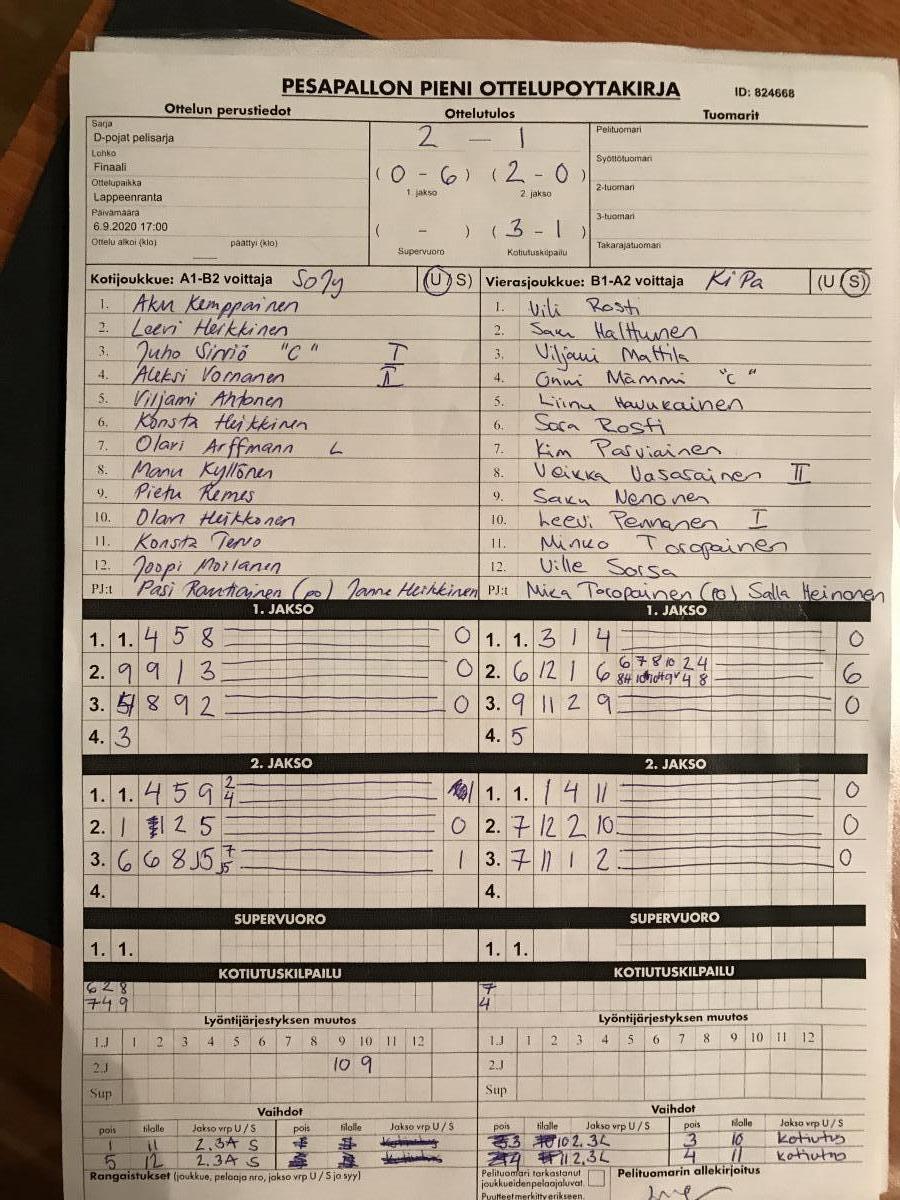 PESAPALLON PIENI OTTELUPOYTAKIRJA ID: 824668
Ottelun perustiedot Ottelutulos Tuomarit
Sarja
D-pojat pelisarja
Lohko
Finaali
Ottelupaikka
Lappeenranta
Päivämäärä
6.9.2020 17:00
Ottelu alkoi (klo) päättyi (klo)
2 — 1
( 0 - 6 ) ( 2 - 0 )
1. jakso 2. jakso
( - ) ( 3 - 1 )
Supervuoro Kotiutuskilpailu
Pelituomari
Syöttötuomari
2-tuomari
3-tuomari
Takarajatuomari
Kotijoukkue: A1-B2 voittaja SoJy (U S)
1. Aku Kemppainen
2. Leevi Heikkinen
3. Juho Sirviö "C" I
4. Aleksi Vornanen II
5. Viljami Ahtonen
6. Konsta Heikkinen
7. Olavi Arffmann L
8. Manu Kyllönen
9. Pietu Remes
10. Olavi Heikkonen
11. Konsta Tervo
12. Joopi Moilanen
PJ:t Pasi Rantiainen (po) Janne Heikkinen
Vierasjoukkue: B1-A2 voittaja KiPa (U S)
1. Vili Rosti
2. Saku Halttunen
3. Viljami Mattila
4. Onni Mämmi "C"
5. Liinu Havukainen
6. Sara Rosti
7. Kim Parviainen
8. Veikka Vasarainen II
9. Saku Nenonen
10. Leevi Pennanen I
11. Minko Toropainen
12. Ville Sorsa
PJ:t Mika Toropainen (po) Salla Heinonen
1. JAKSO 1. JAKSO
1. 1. 4 5 8 0 1. 1. 3 1 4 0
2. 9 9 1 3 0 2. 6 12 1 6 6 7 8 10 2 4 6
3. 8 9 2 0 3. 9 11 2 9 0
4. 3 4. 5
2. JAKSO 2. JAKSO
1. 1. 4 5 9 2 4 1 1. 1. 1 4 11 0
2. 1 1 2 5 0 2. 7 12 2 10 0
3. 6 6 8 J5 7 J5 1 3. 7 11 1 2 0
4. 4.
SUPERVUORO SUPERVUORO
1. 1. 1. 1.
KOTIUTUSKILPAILU KOTIUTUSKILPAILU
6 2 8 7
7 4 9 4
Lyöntijärjestyksen muutos Lyöntijärjestyksen muutos
1.J 1 2 3 4 5 6 7 8 9 10 11 12 1.J 1 2 3 4 5 6 7 8 9 10 11 12
2.J 10 9 2.J
Sup Sup
Vaihdot Vaihdot
pois tilalle Jakso vrp U / S pois tilalle Jakso vrp U / S pois tilalle Jakso vrp U / S pois tilalle Jakso vrp U / S
1 11 2.3A S 3 10 2.3L 3 10 kotiutus
5 12 2.3A S 4 11 2.3L 4 11 kotiutus
Rangaistukset (joukkue, pelaaja nro, jakso vrp U / S ja syy) Pelituomari tarkastanut Pelituomarin allekirjoitus
joukkueidenpelaajaluvat.
Puutteet merkitty erikseen.